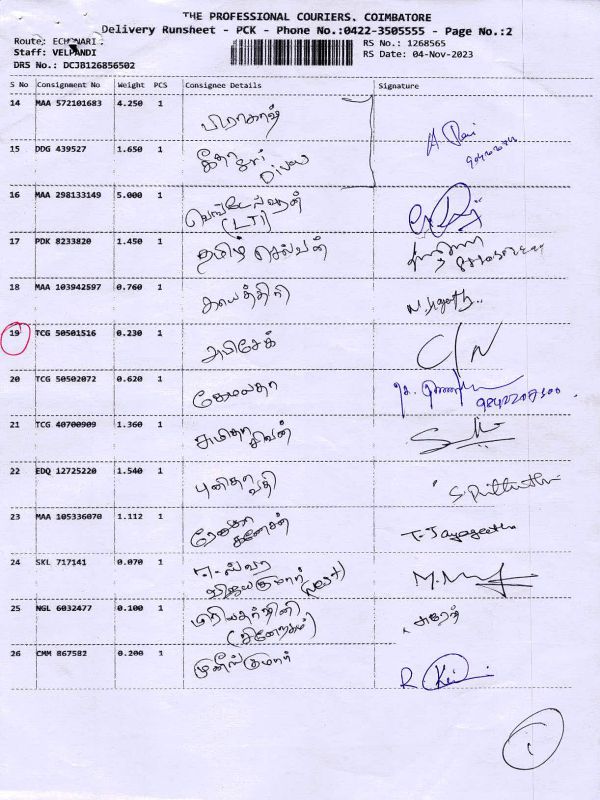 THE PROFESSIONAL COURIERS, COIMBATORE
Delivery Runsheet - PCK - Phone No.:0422-3505555 - Page No.:2
Route: ECHANARI
RS No.: 1268565
Staff: VELPANDI
RS Date: 04-Nov-2023
DRS No.: DCJB126856502
S No Consignment No Weight PCS Consignee Details Signature
14 MAA 572101683 4.250 1 பிரகாஷ்
15 DDG 439527 1.650 1 கீதா
ஹரி
Divu
A. Ravi
16 MAA 298133149 5.000 1 வெங்டேஸ்வரன்
(LTI)
17 PDK 8233820 1.450 1 தமிழ் செல்வன்
18 MAA 103942597 0.760 1 காயத்திரி
19 TCG 50501516 0.230 1 அபிசேக் C/N
20 TCG 50502072 0.620 1 ஹேமலதா
9842208300
21 TCG 40700909 1.360 1
சிவன்
22 EDQ 12725220 1.540 1 புனிதா
வதி
23 MAA 105336070 1.112 1 ரேணுகா
கணேசன் T. Jayageetha
24 SKL 717141 0.070 1
விஜயகுமார்
25 NGL 6032477 0.100 1 பிரியதர்ஷினி
(சினேகம்)
சுரேஷ்
26 CMM 867582 0.200 1 முனீஸ்குமார்
R
1